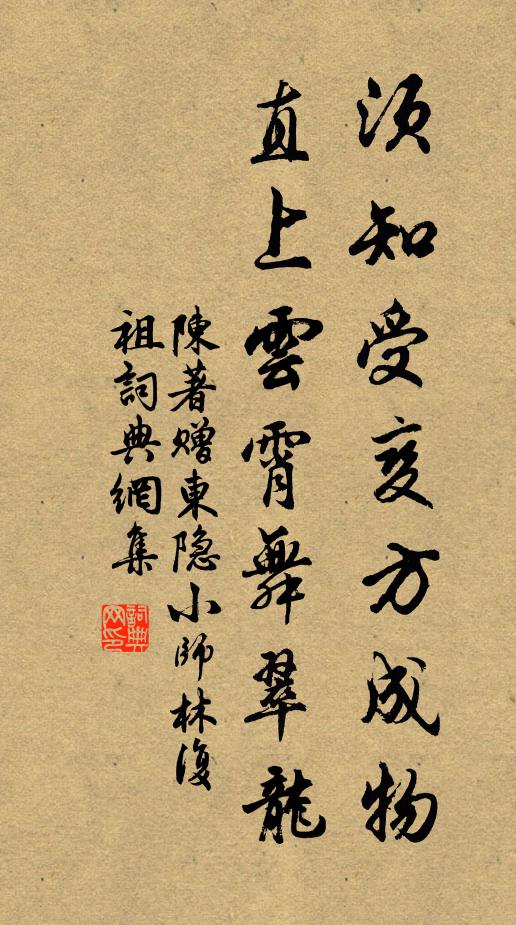 須知受变方成物
直上雲霄舞翠龍
陳著赠東隐小師林復
祖詞典網集
詞典网印